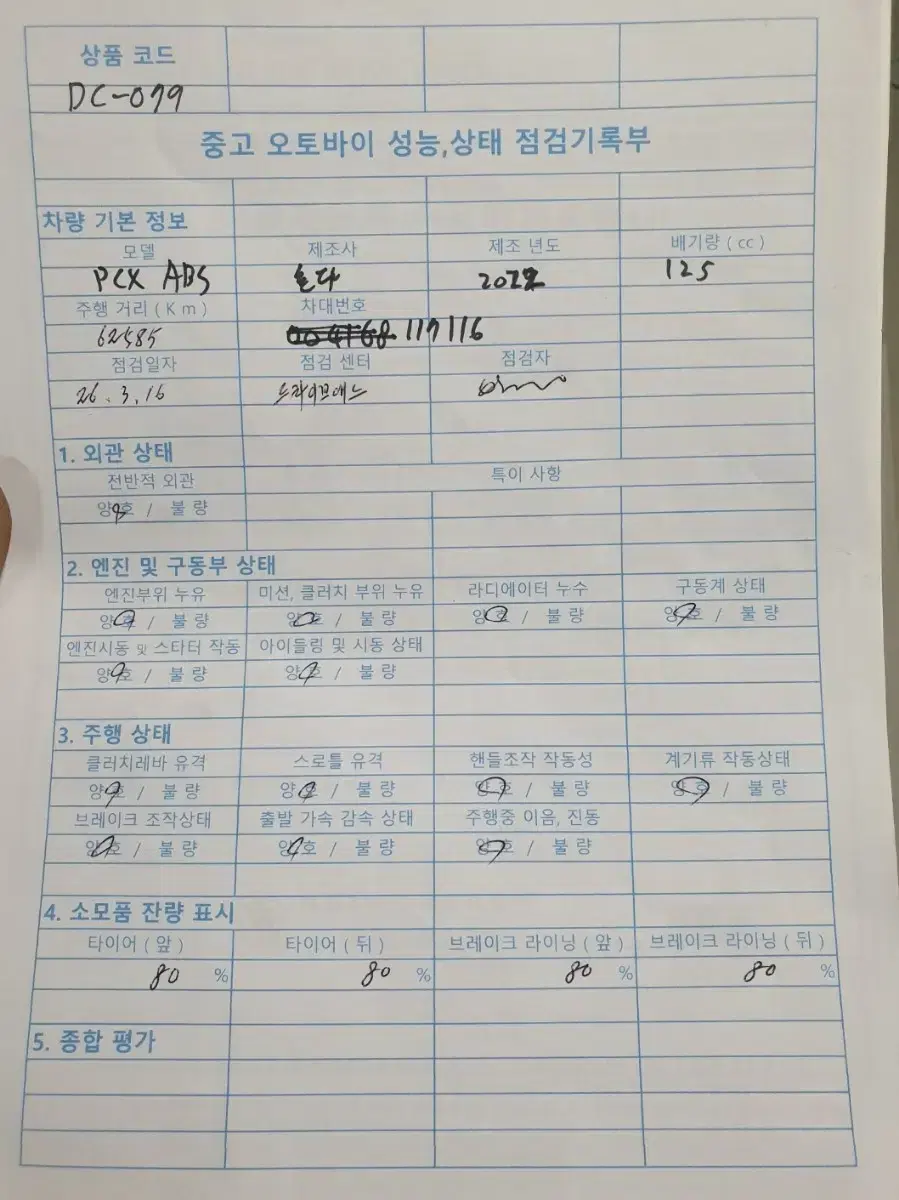 상품 코드
DC-079
중고 오토바이 성능,상태 점검기록부
차량 기본 정보
모델 제조사 제조 년도 배기량 ( cc )
PCX ABS 혼다 2022 125
주행 거리 ( K m ) 차대번호
62585 117116
점검일자 점검 센터 점검자
26. 3. 16 드라이브에느
1. 외관 상태
전반적 외관 특이 사항
양호 / 불 량
2. 엔진 및 구동부 상태
엔진부위 누유 미션, 클러치 부위 누유 라디에이터 누수 구동계 상태
양호 / 불 량 양호 / 불 량 양호 / 불 량 양호 / 불 량
엔진시동 및 스타터 작동 아이들링 및 시동 상태
양호 / 불 량 양호 / 불 량
3. 주행 상태
클러치레바 유격 스로틀 유격 핸들조작 작동성 계기류 작동상태
양호 / 불 량 양호 / 불 량 양호 / 불 량 양호 / 불 량
브레이크 조작상태 출발 가속 감속 상태 주행중 이음, 진동
양호 / 불 량 양호 / 불 량 양호 / 불 량
4. 소모품 잔량 표시
타이어 ( 앞 ) 타이어 ( 뒤 ) 브레이크 라이닝 ( 앞 ) 브레이크 라이닝 ( 뒤 )
80 % 80 % 80 % 80 %
5. 종합 평가